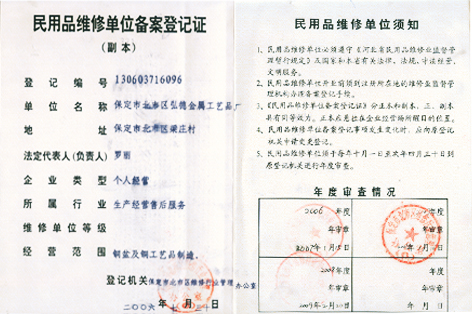 民用品维修单位备案登记证
(副本)
登记编号 130603716096
单位名称 保定市北市区弘德金属工艺品厂
地址 保定市北市区梁庄村
法定代表人(负责人) 罗丽
企业类型 个人经营
所属行业 生产经营售后服务
维修单位等级
经营范围 铜盆及铜工艺品制造。
登记机关 保定市北市区维修行业管理办公室
民用品维修单位须知
1、民用品维修单位必须遵守《河北省民用品维修业监督管
理暂行规定》及国家和本省有关法律、法规,守法经营,
文明服务。
2、民用品维修单位开业前须到注册所在地的维修业监督管
理机构办理备案登记手续。
3、《民用品维修单位备案登记证》分正本和副本,正、副本
具有同等效力。正本应悬挂在企业经营场所醒目的位置。
4、民用品维修单位备案登记事项发生变化时,应向原登记
机关申请变更登记。
5、民用品维修单位须于每年十一月一日至次年四月三十日到原
登记机关进行年度审查。
年度审查情况
2006 年度
年审章
2007年1月15日
年度
年审章
2008年度
年审章
年度
年审章
年 月 日